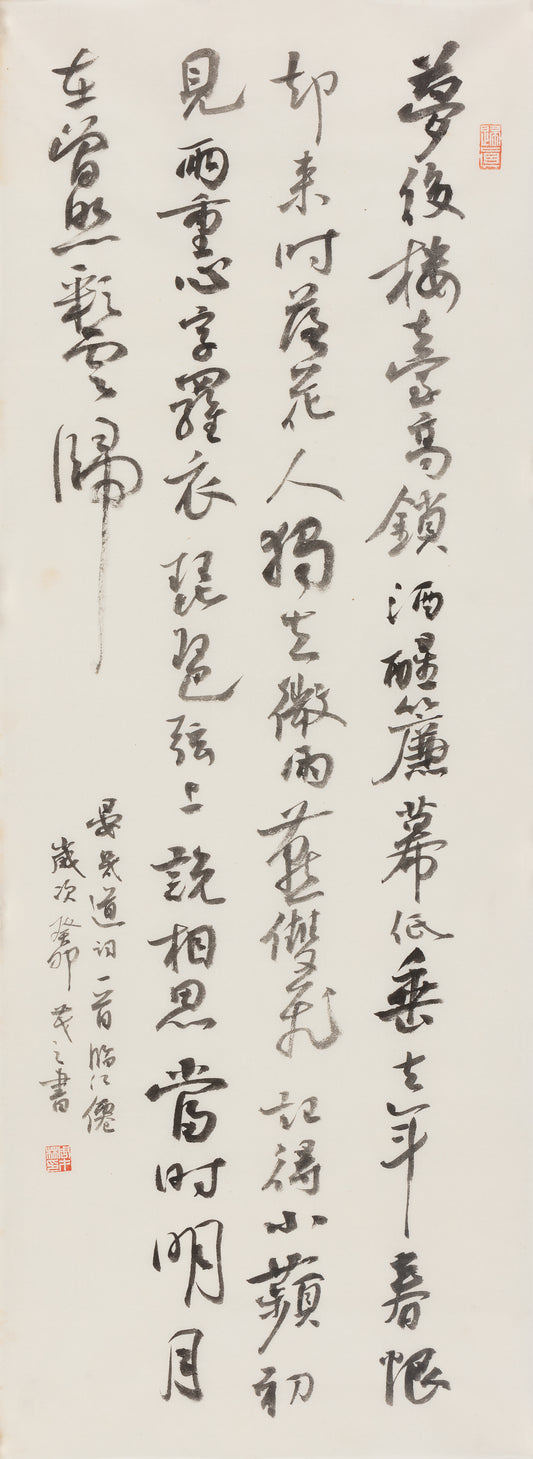 夢後樓臺高鎖酒醒簾幕低垂去年春恨
却来时落花人獨立微雨燕雙飛記得小蘋初
見兩重心字羅衣琵琶弦上說相思當时明月
在曾照彩雲歸
晏幾道词一首臨江僊
歲次癸卯茂之書